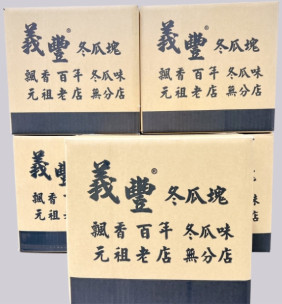 義豐®冬瓜塊
飄香百年 冬瓜味
元祖老店 無分店
義豐®冬瓜塊
飄香百年 冬瓜味
元祖老店 無分店
義
飄
元祖
味
店
義豐®冬瓜塊
飄香百年 冬瓜味
元祖老店 無分店